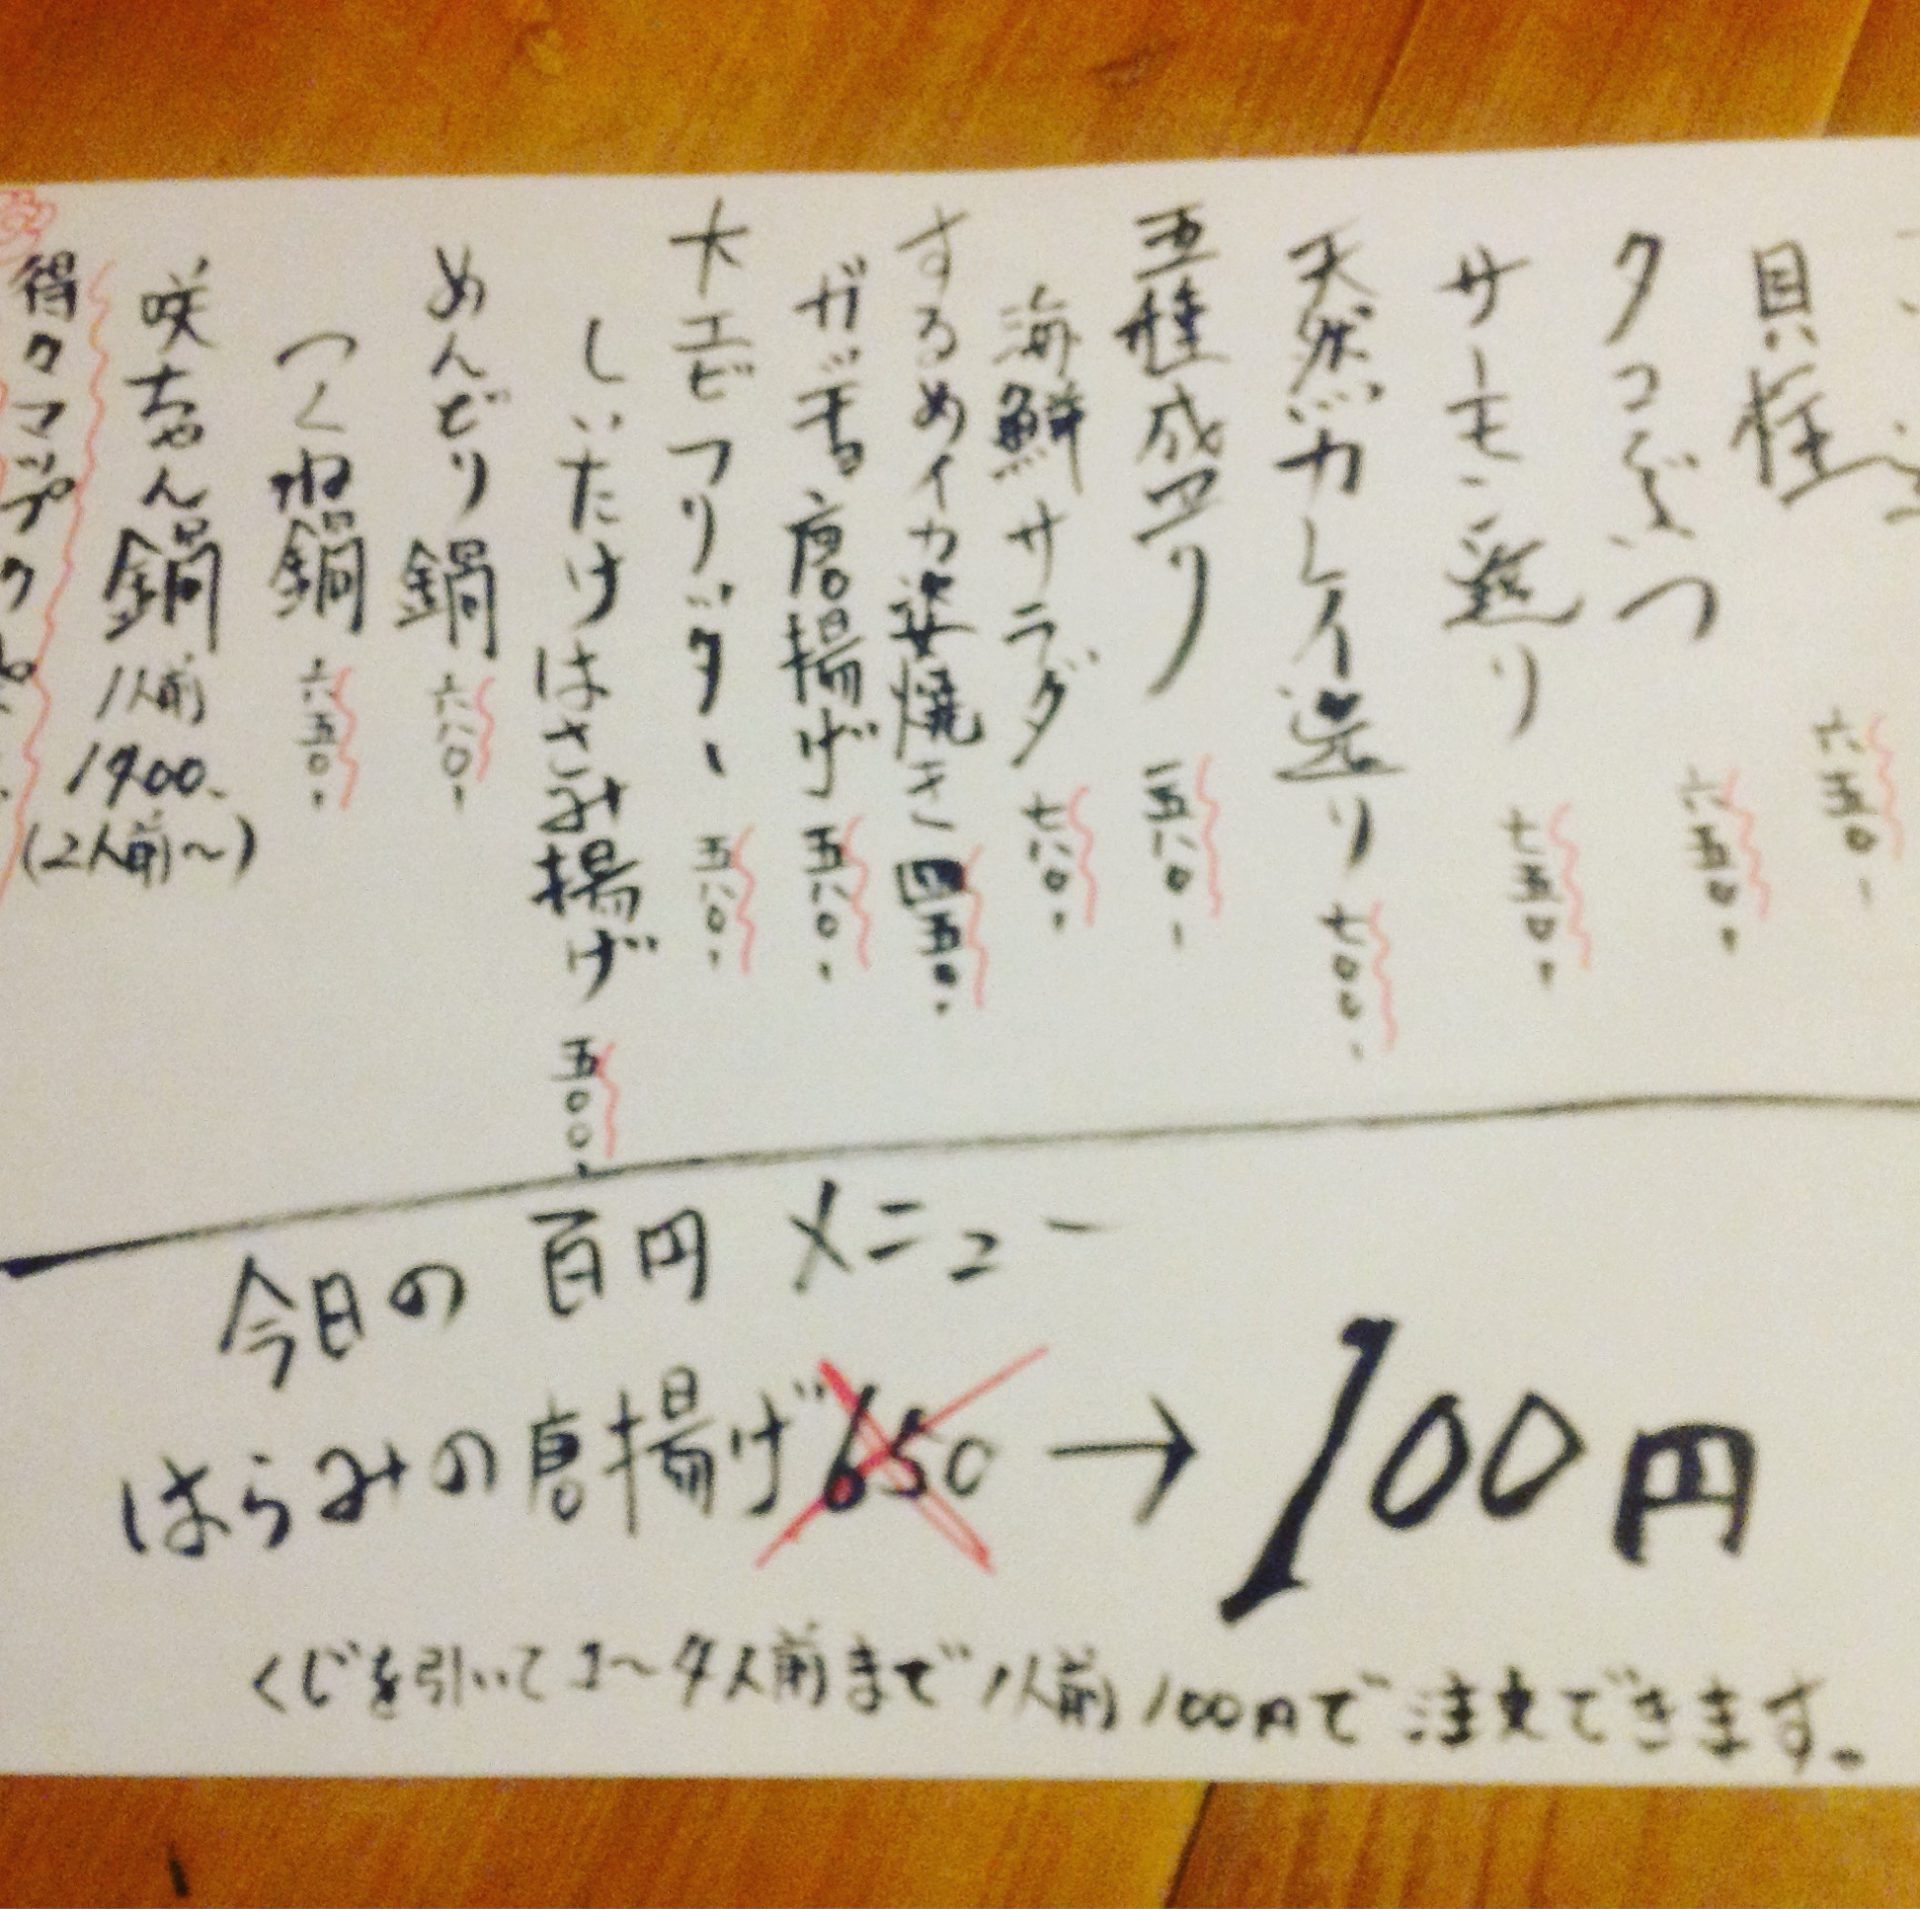 貝柱 六五〇
タコぶつ 六五〇
サーモン造り 七五〇
天然カレイ造り 七〇〇
五種盛り 一五八〇
海鮮サラダ 七八〇
するめイカ姿焼き 四五〇
唐揚げ 五八〇
大エビフリッター 五八〇
しいたけはさみ揚げ 五〇〇
めんどり鍋 六八〇
つくね鍋 六五〇
咲ちゃん鍋 1人前
1900
(2人前〜)
得々マップ
今日の百円メニュー
はらみの唐揚げ 650 → 100円
くじを引いて1〜9人前まで1人前100円で注文できます。